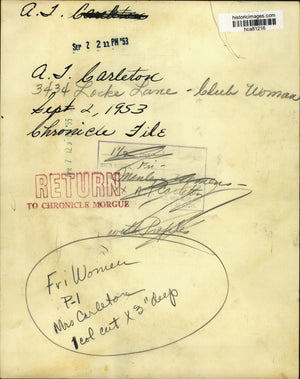 historicimages.com
hca81216
A. T. Carleton
SEP 2 2 11 PM '53
A. T. Carleton
3434 Locke Lane - Club Woman
Sept 2, 1953
Chronicle File
RETURN
TO CHRONICLE MORGUE
Fri Women
P-1
Mrs Carleton
1 col cut X 3" deep